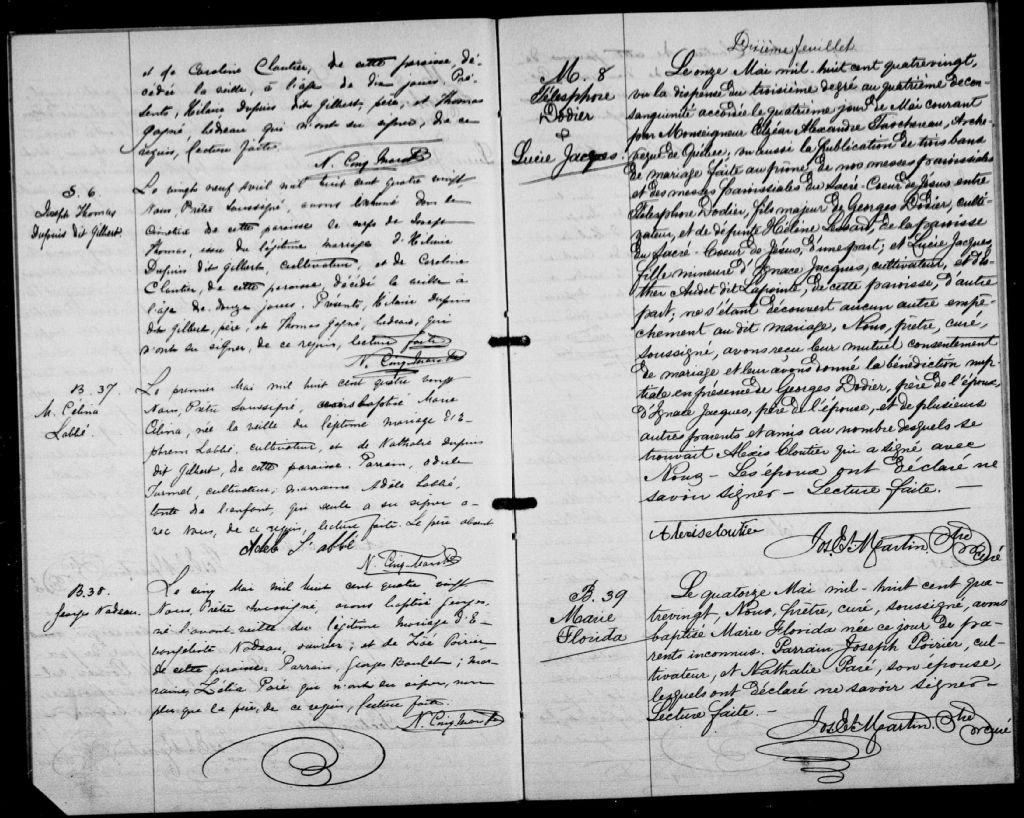 et de Caroline Cloutier, de cette paroisse, dé-
cédée la veille, à l'âge de dix jours Pré-
sents, Hilaire Dupuis dit Gilbert, père, et Thomas
Gagné, bedeau qui n'ont su signer, de ce
requis, lecture faite.
N. Cinq-Mars Ptre
S. 6.
Joseph Thomas
Dupuis dit Gilbert
Le vingt neuf avril mil huit cent quatre vingt
Nous, Prêtre Soussigné, avons inhumé dans le
Cimetière de cette paroisse le corps de Joseph
Thomas, issu du légitime mariage d'Hilaire
Dupuis dit Gilbert, cultivateur, et de Caroline
Cloutier, de cette paroisse, décédé la veille à
l'âge de douze jours. Présents, Hilaire Dupuis
dit Gilbert, père, et Thomas Gagné, bedeau, qui
n'ont su signer, de ce requis, lecture faite
N. Cinq-Mars Ptre
B. 37
M. Célina
Labbé.
Le premier Mai mil huit cent quatre vingt
Nous, Prêtre Soussigné, avons baptisé Marie
Célina, née la veille du légitime mariage d'E-
phrem Labbé, cultivateur, et de Nathalie Dupuis
dit Gilbert, de cette paroisse. Parrain,
Turmel, cultivateur; marraine Adèle Labbé,
tante de l'enfant, qui seule a su signer a-
vec nous, de ce requis, lecture faite. Le père absent
Adele L'abbé
N. Cinq-Mars Ptre
B. 38.
Georges Nadeau.
Le cinq Mai mil huit cent quatre vingt
Nous, Prêtre Soussigné, avons baptisé Georges,
né l'avant-veille du légitime mariage d'E-
vangéliste Nadeau, ouvrier; et de Zoé Poirier,
de cette paroisse. Parrain, Georges Boulet; mar-
raine, Paré qui n'ont su signer, non
plus que le père, de ce requis, lecture faite.
N. Cinq-Mars Ptre
Dixième feuillet
M. 8
Télesphore
Dodier
&
Lucie Jacques.
Le onze Mai mil-huit cent quatrevingt,
vu la dispense du troisième degré au quatrième de con-
sanguinité accordée le quatrième jour de Mai courant
par Monseigneur Elzéar Alexandre Taschereau, Arche-
vêque de Québec, vu aussi la publication de trois bans
de mariage faite au prône de nos messes paroissiales
et des messes paroissiales du Sacré-Coeur de Jésus entre
Télesphore Dodier, fils majeur de Georges Dodier, culti-
vateur, et de défunte Hélène Lessard, de la paroisse
du Sacré-Coeur de Jésus, d'une part; et Lucie Jacques,
fille mineure d'Ignace Jacques, cultivateur, et d'Es-
ther Audet dit Lapointe, de cette paroisse, d'autre
part; ne s'étant découvert aucun autre empê-
chement au dit mariage, Nous, prêtre, curé,
soussigné, avons reçu leur mutuel consentement
de mariage et leur avons donné la bénédiction nup-
tiale en présence de Georges Dodier, père de l'époux,
d'Ignace Jacques, père de l'épouse, et de plusieurs
autres parents et amis au nombre desquels se
trouvait Alexis Cloutier qui a signé avec
Nous — Les époux ont déclaré ne
savoir signer — Lecture faite. —
Alexis cloutier
Jos. Et. Martin, Ptre curé
B. 39
Marie
Florida
Le quatorze Mai mil-huit cent qua-
trevingt, Nous, prêtre, curé, soussigné, avons
baptisé Marie Florida née ce jour de pa-
rents inconnus. Parrain Joseph Poirier, cul-
tivateur, et Nathalie Paré, son épouse,
lesquels ont déclaré ne savoir signer —
Lecture faite. —
Jos. Et. Martin, Ptre curé